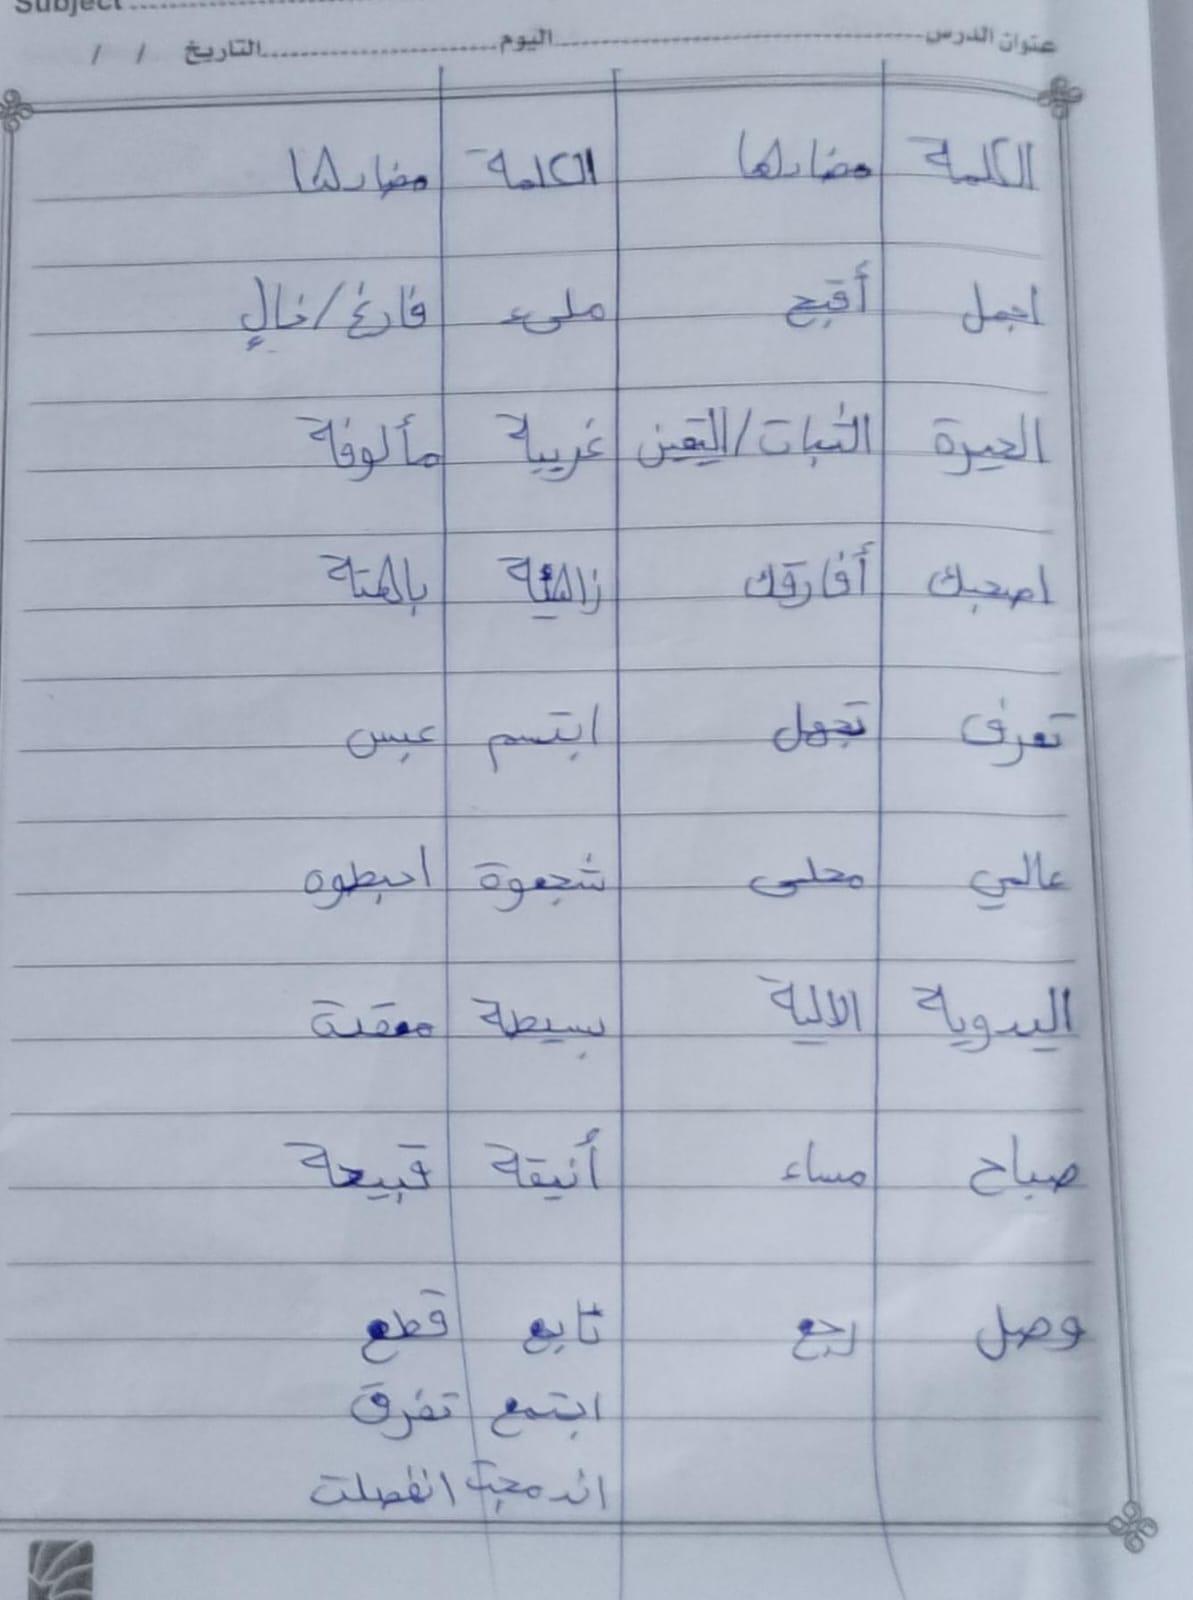 Subject
عنوان الدرس اليوم التاريخ / /
الكلمة مضادها الكلمة مضادها
اجمل أقبح مليء فارغ/خالٍ
الحيرة الثبات/اليقين غريبة مألوفة
اصحبك أفارقك زاهية باهتة
تعرف تجهل ابتسم عبس
عالمي محلى شجعوة احبطوه
اليدوية الالية بسيطة معقدة
صباح مساء أنيقة قبيحة
وصل رجع تابع قطع
اجتمع تفرق
اندمجت انفصلت